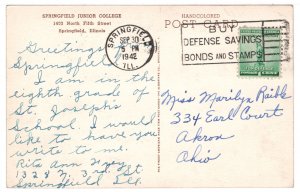 SPRINGFIELD JUNIOR COLLEGE
1500 North Fifth Street
Springfield, Illinois
HANDCOLORED
POST CARD
SPRINGFIELD
SEP 30
5 PM
1942
ILL.
BUY
DEFENSE SAVINGS
BONDS AND STAMPS
Greetings from
Springfield
I am in the
eighth grade of
St. Joseph's
School. I would
like to have you
write to me.
Rita Ann
1328 N. 3rd St
Springfield Ill.
Miss Marilyn Raible
334 Earl Court
Akron
Ohio